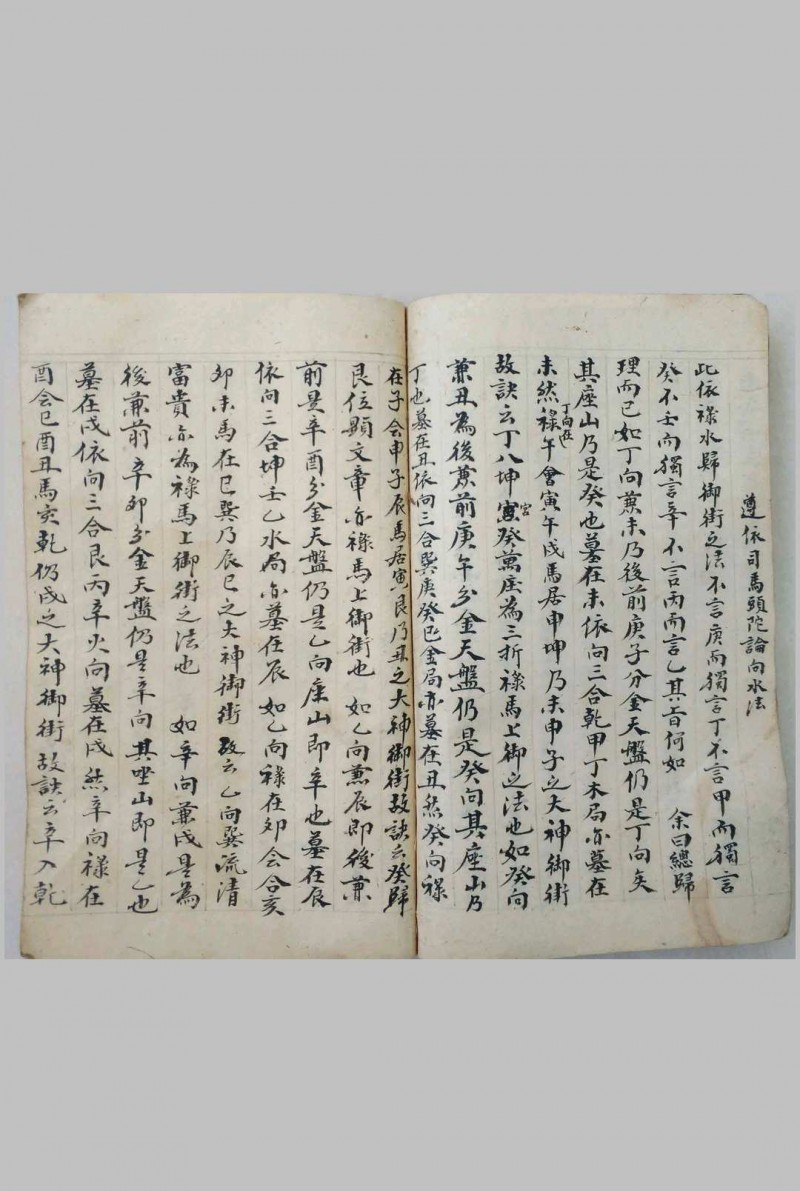 遵依司馬頭陀論向水法
此依祿水歸御街之法不言庚而獨言丁不言甲而獨言
癸不壬而獨言辛不言丙而言乙其旨何如 余曰總歸
理而已如丁向兼未乃後前庚子分金天盤仍是丁向矣
其座山乃是癸也墓在未依向三合乾甲丁木局亦墓在
未然丁向祿在午會寅午戌馬居申坤乃未申子之大神御街
故訣云丁八坤宮癸萬座為三折祿馬上御之法也如癸向
兼丑為後兼前庚午分金天盤仍是癸向其座山乃
丁也墓在丑依向三合巽庚癸巳金局亦墓在丑然癸向祿
在子會申子辰馬居寅艮乃丑之大神御街故訣云癸歸
艮位顯文章亦祿馬上御街也 如乙向兼辰即後兼
前是辛酉分金天盤仍是乙向座山即辛也墓在辰
依向三合坤壬乙水局亦墓在辰 如乙向祿在卯会合亥
卯未馬在巳巽乃辰巳之大神御街 故云乙向巽流清
富貴亦為祿馬上御街之法也 如辛向兼戌是為
後兼前 辛卯分金天盤仍是辛向 其坐山即是乙也
墓在戌依向三合艮丙辛火向墓在戌 然辛向祿在
酉会巳酉丑馬亥乾仍戌之大神御街 故訣云辛入乾